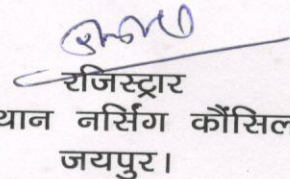 रजिस्ट्रार
थान नर्सिंग कौंसिल
जयपुर।